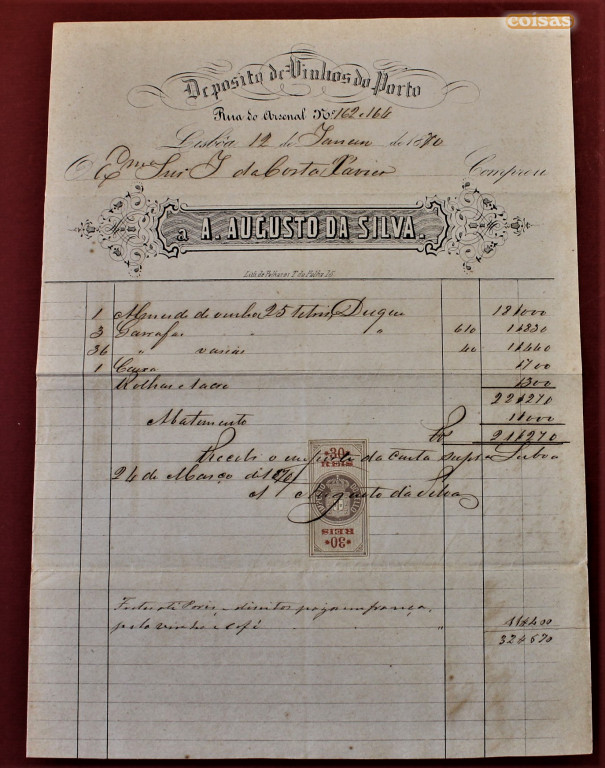 coisas
Deposito de Vinhos do Porto
Rua do Arsenal Nos 162 e 164
Lisboa 12 de Janeiro de 1870
O Exmo Luis J da Costa Xavier Comprou
a A. AUGUSTO DA SILVA.
1 Almude de vinho 25 litros Duque 18$000
3 Garrafas " " 610 1$830
36 " vasias 40 1$440
1 Caixa $700
Rolhas e lacre $300
22$270
Abatimento 1$000
Rs 21$270
Recebi o importe da conta supra Lisboa
24 de Março de 1870
A Augusto da Silva
30
REIS
REIS
30
direitos pagos em frança,
pelo vinho e café " 11$400
32$670